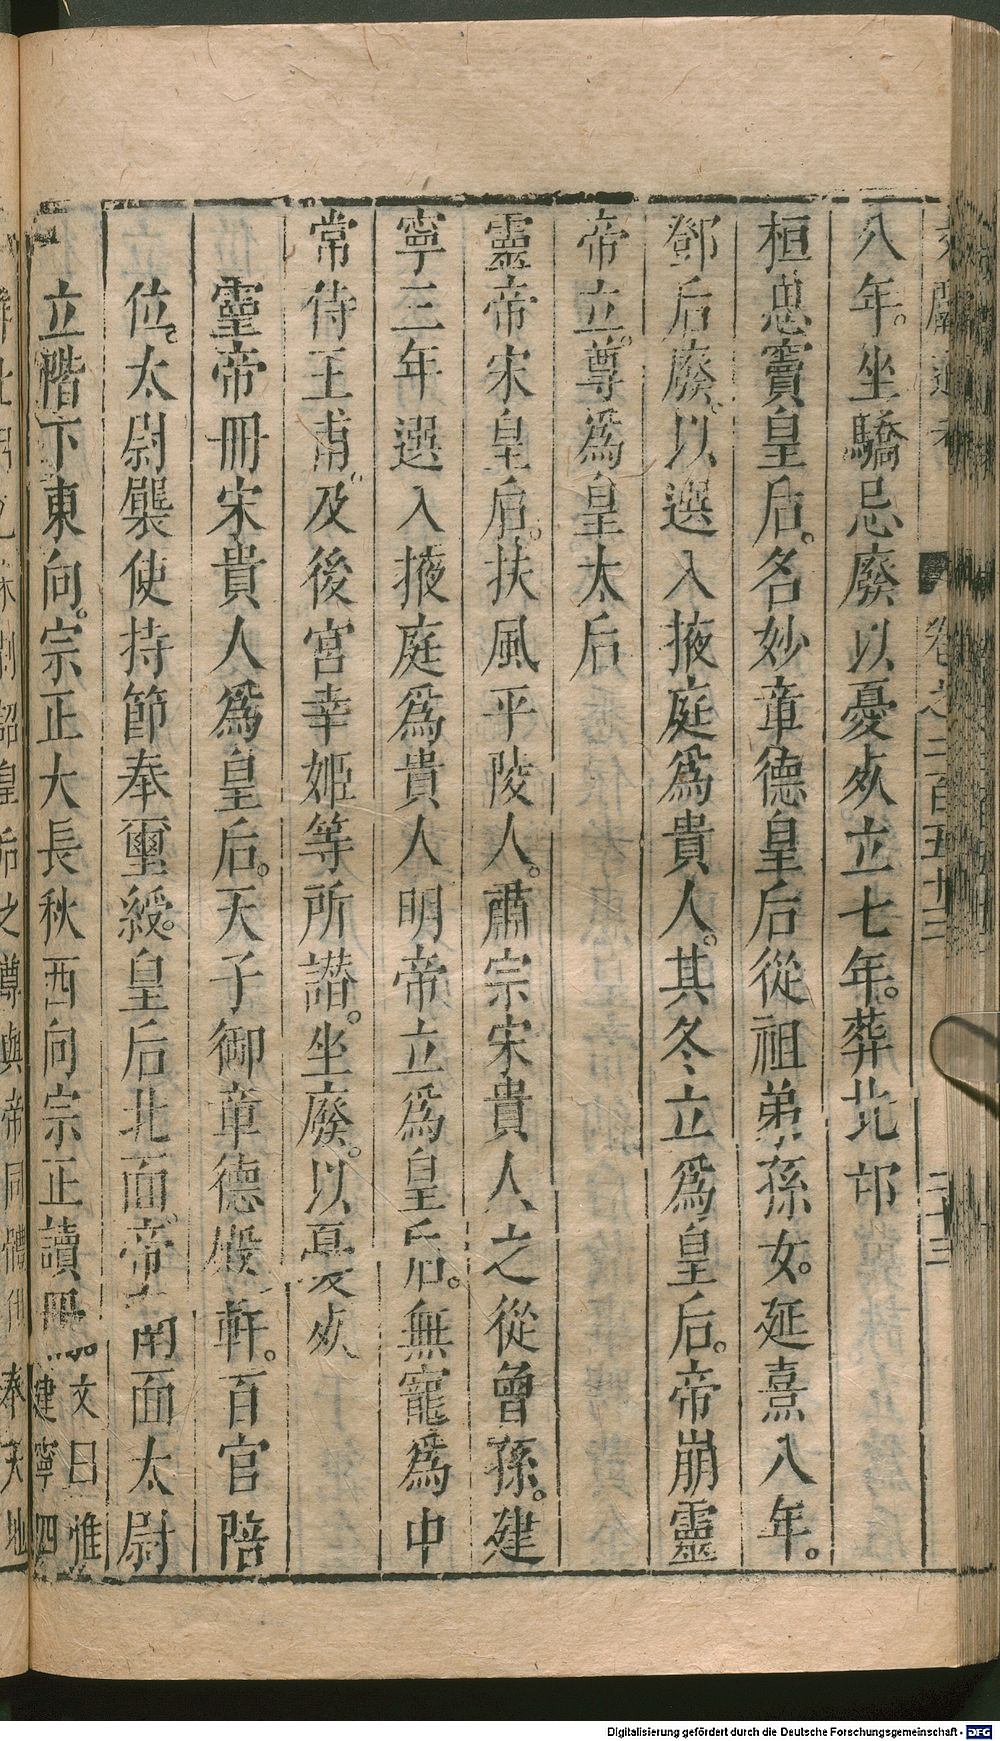 文獻通考 卷之二百五十三 二十三
八年。坐驕忌廢以憂歿立七年。葬北邙
桓思竇皇后。名妙章德皇后從祖弟孫女。延熹八年。
鄧后廢。以選入掖庭爲貴人。其冬立爲皇后。帝崩靈
帝立。尊爲皇太后
靈帝宋皇后。扶風平陵人。肅宗宋貴人之從曾孫。建
寧三年選入掖庭爲貴人明帝立爲皇后。無寵爲中
常侍王甫及後宮幸姬等所譖。坐廢。以憂歿
靈帝冊宋貴人爲皇后。天子御章德殿軒。百官陪
位。太尉襲使持節奉璽綬。皇后北面帝南面太尉
立階下東向。宗正大長秋西向宗正讀冊 文曰惟
建寧四
皇后之尊與帝同體 奉天地
Digitalisierung gefördert durch die Deutsche Forschungsgemeinschaft - DFG